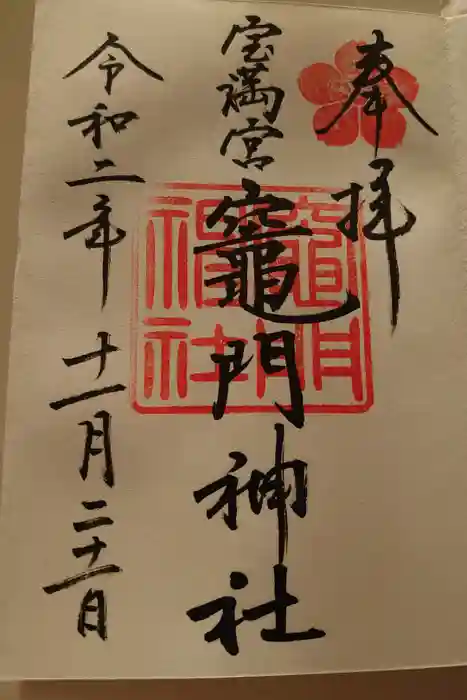 奉拝
宝満宮
竈門神社
令和二年十一月二十一日
竈門神社